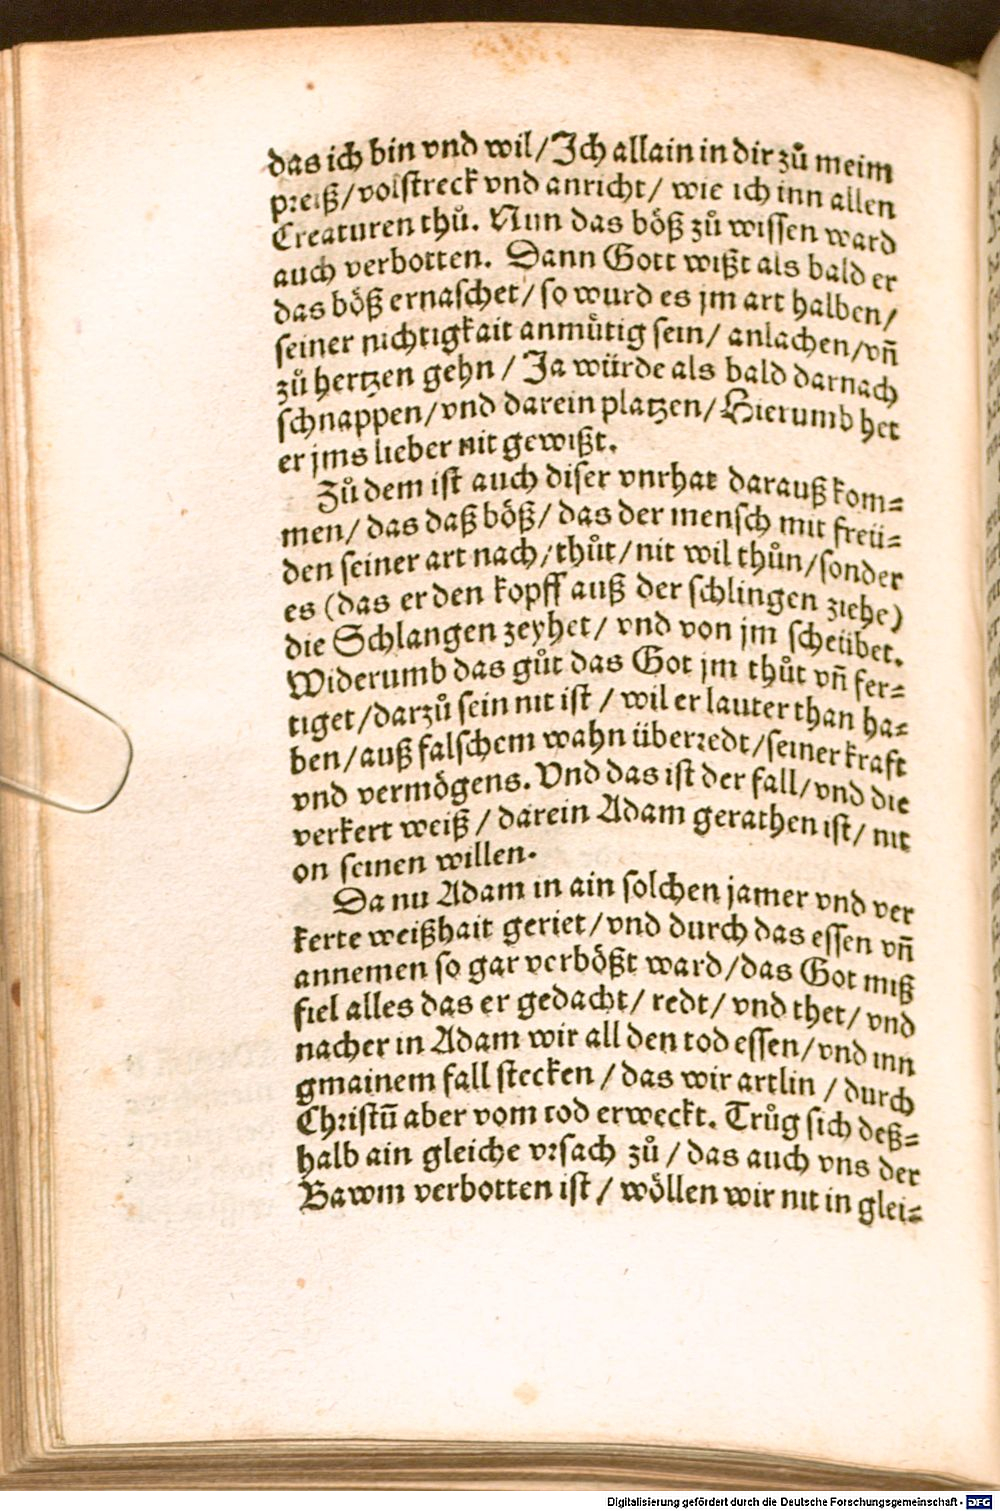 das ich bin vnd wil/Jch allain in dir zů meim
preiß/volstreck vnd anricht/ wie ich inn allen
Creaturen thů. Nun das böß zů wissen ward
auch verbotten. Dann Gott wißt als bald er
das böß ernaschet/ so wurd es jm art halben/
seiner nichtigkait anmůtig sein/ anlachen/vñ
zů hertzen gehn / Ja würde als bald darnach
schnappen/vnd darein platzen/ Hierumb het
er jms lieber nit gewißt.
Zů dem ist auch diser vnrhat darauß kom=
men/ das daß böß/ das der mensch mit freü=
den seiner art nach/thůt/ nit wil thůn/sonder
es (das er den kopff auß der schlingen ziehe)
die Schlangen zeyhet/ vnd von jm scheübet.
Widerumb das gůt das Got jm thůt vñ fer=
tiget/darzů sein nit ist / wil er lauter than ha=
ben/auß falschem wahn überredt/seiner kraft
vnd vermögens. Vnd das ist der fall/vnd die
verkert weiß / darein Adam gerathen ist/ nit
on seinen willen.
Da nu Adam in ain solchen jamer vnd ver
kerte weißhait geriet/vnd durch das essen vñ
annemen so gar verbößt ward/das Got miß
fiel alles das er gedacht/ redt/ vnd thet/ vnd
nacher in Adam wir all den tod essen/vnd inn
gmainem fall stecken / das wir artlin / durch
Christū aber vom tod erweckt. Trůg sich deß=
halb ain gleiche vrsach zů / das auch vns der
Bawm verbotten ist / wöllen wir nit in glei=
Digitalisierung gefördert durch die Deutsche Forschungsgemeinschaft - DFG